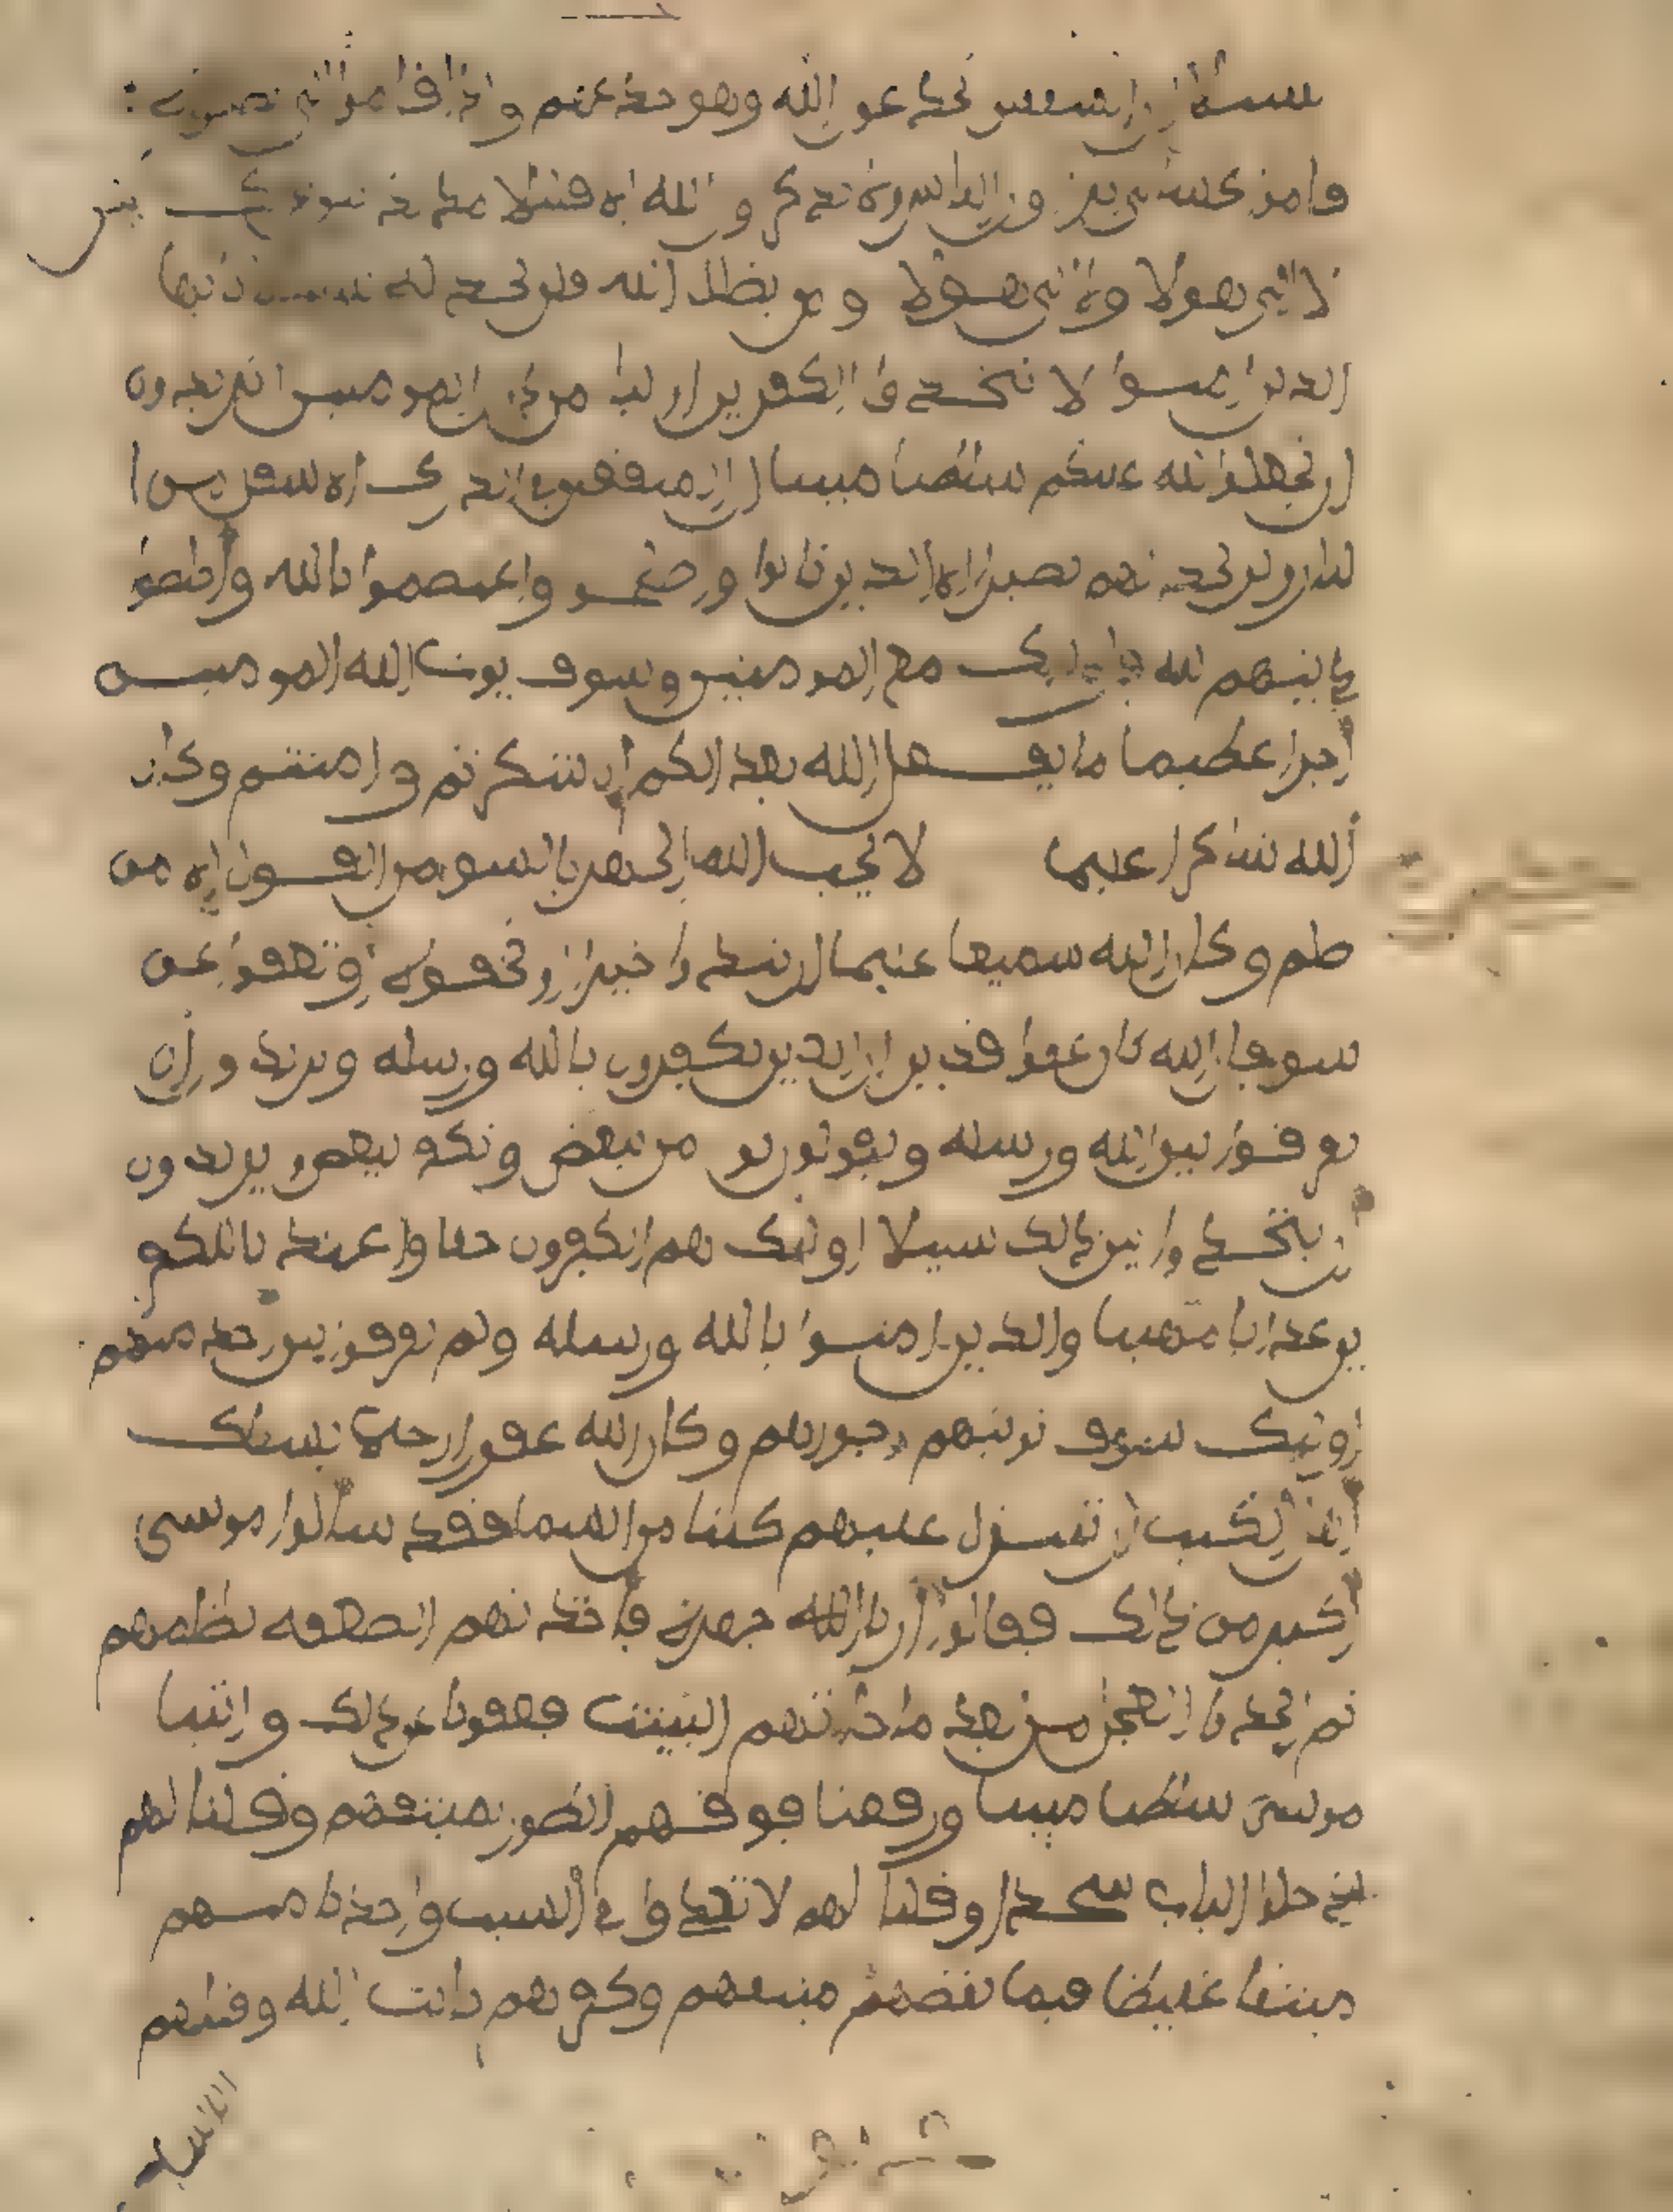 سبيلا ان المنفقين يخدعون الله وهو خدعهم واذا قاموا الى الصلوة
قاموا كسالى يراءون الناس ولا يذكرون الله الا قليلا مذبذبين بين ذلك
لا الى هولا ولا الى هولا ومن يضلل الله فلن تجد له سبيلا يايها
الذين امنوا لا تتخذوا الكفرين اوليا من دون المومنين اتريدون
ان تجعلوا لله عليكم سلطنا مبينا ان المنفقين في الدرك الاسفل من ا
لنار ولن تجد لهم نصيرا الا الذين تابوا واصلحوا واعتصموا بالله واخلصوا
دينهم لله فاوليك مع المومنين وسوف يوت الله المومنين
اجرا عظيما ما يفعل الله بعذابكم ان شكرتم وامنتم وكان
الله شاكرا عليما لا يحب الله الجهر بالسوء من القول الا من
ظلم وكان الله سميعا عليما ان تبدوا خيرا او تخفوه او تعفوا عن
سوء فان الله كان عفوا قديرا ان الذين يكفرون بالله ورسله ويريدون ان
يفرقوا بين الله ورسله ويقولون نومن ببعض ونكفر ببعض ويريدون
ان يتخذوا بين ذالك سبيلا اوليك هم الكفرون حقا واعتدنا للكفر
ين عذابا مهينا والذين امنوا بالله ورسله ولم يفرقوا بين احد منهم
اوليك سوف نوتيهم اجورهم وكان الله غفورا رحيما يسلك
اهل الكتب ان تنزل عليهم كتبا من السما فقد سالوا موسى
اكبر من ذالك فقالوا ارنا الله جهرة فاخذتهم الصعقة بظلمهم
ثم اتخذوا العجل من بعد ما جاءتهم البينت فعفونا عن ذالك واتينا
موسى سلطنا مبينا ورفعنا فوقهم الطور بميثقهم وقلنا لهم
ادخلوا الباب سجدا وقلنا لهم لا تعدوا في السبت واخذنا منهم
ميثقا غليظا فبما نقضهم ميثقهم وكفرهم بايت الله وقتلهم
الانبيا